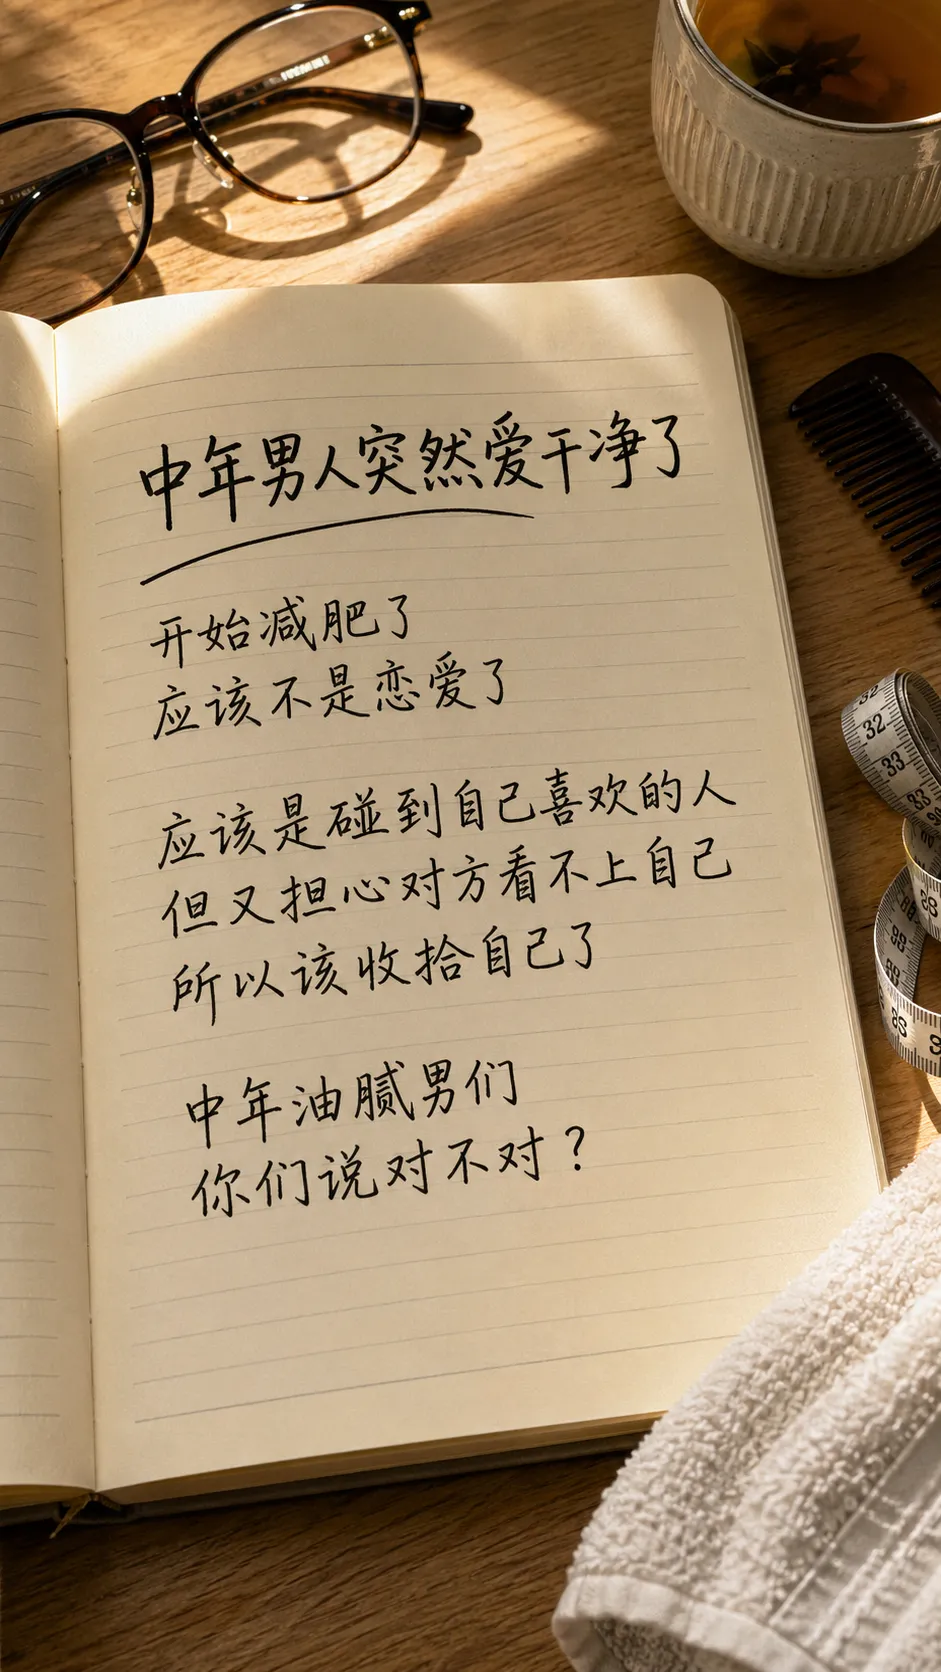 中年男人突然爱干净了
开始减肥了
应该不是恋爱了
应该是碰到自己喜欢的人
但又担心对方看不上自己
所以该收拾自己了
中年油腻男们
你们说对不对？
32
32
33